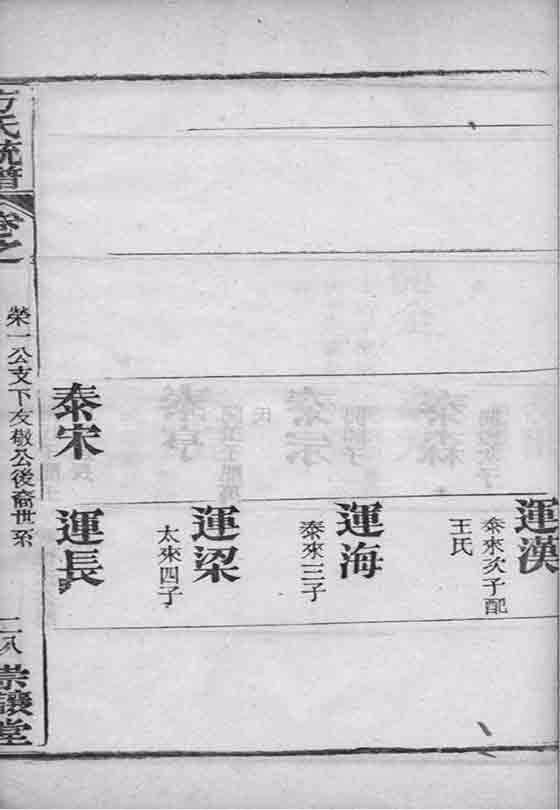 運漢
泰來次子配
王氏
運海
泰來三子
運梁
太來四子
泰宋
運長
方氏統譜
卷之
榮一公支下友敬公後裔世系
二八
崇讓堂